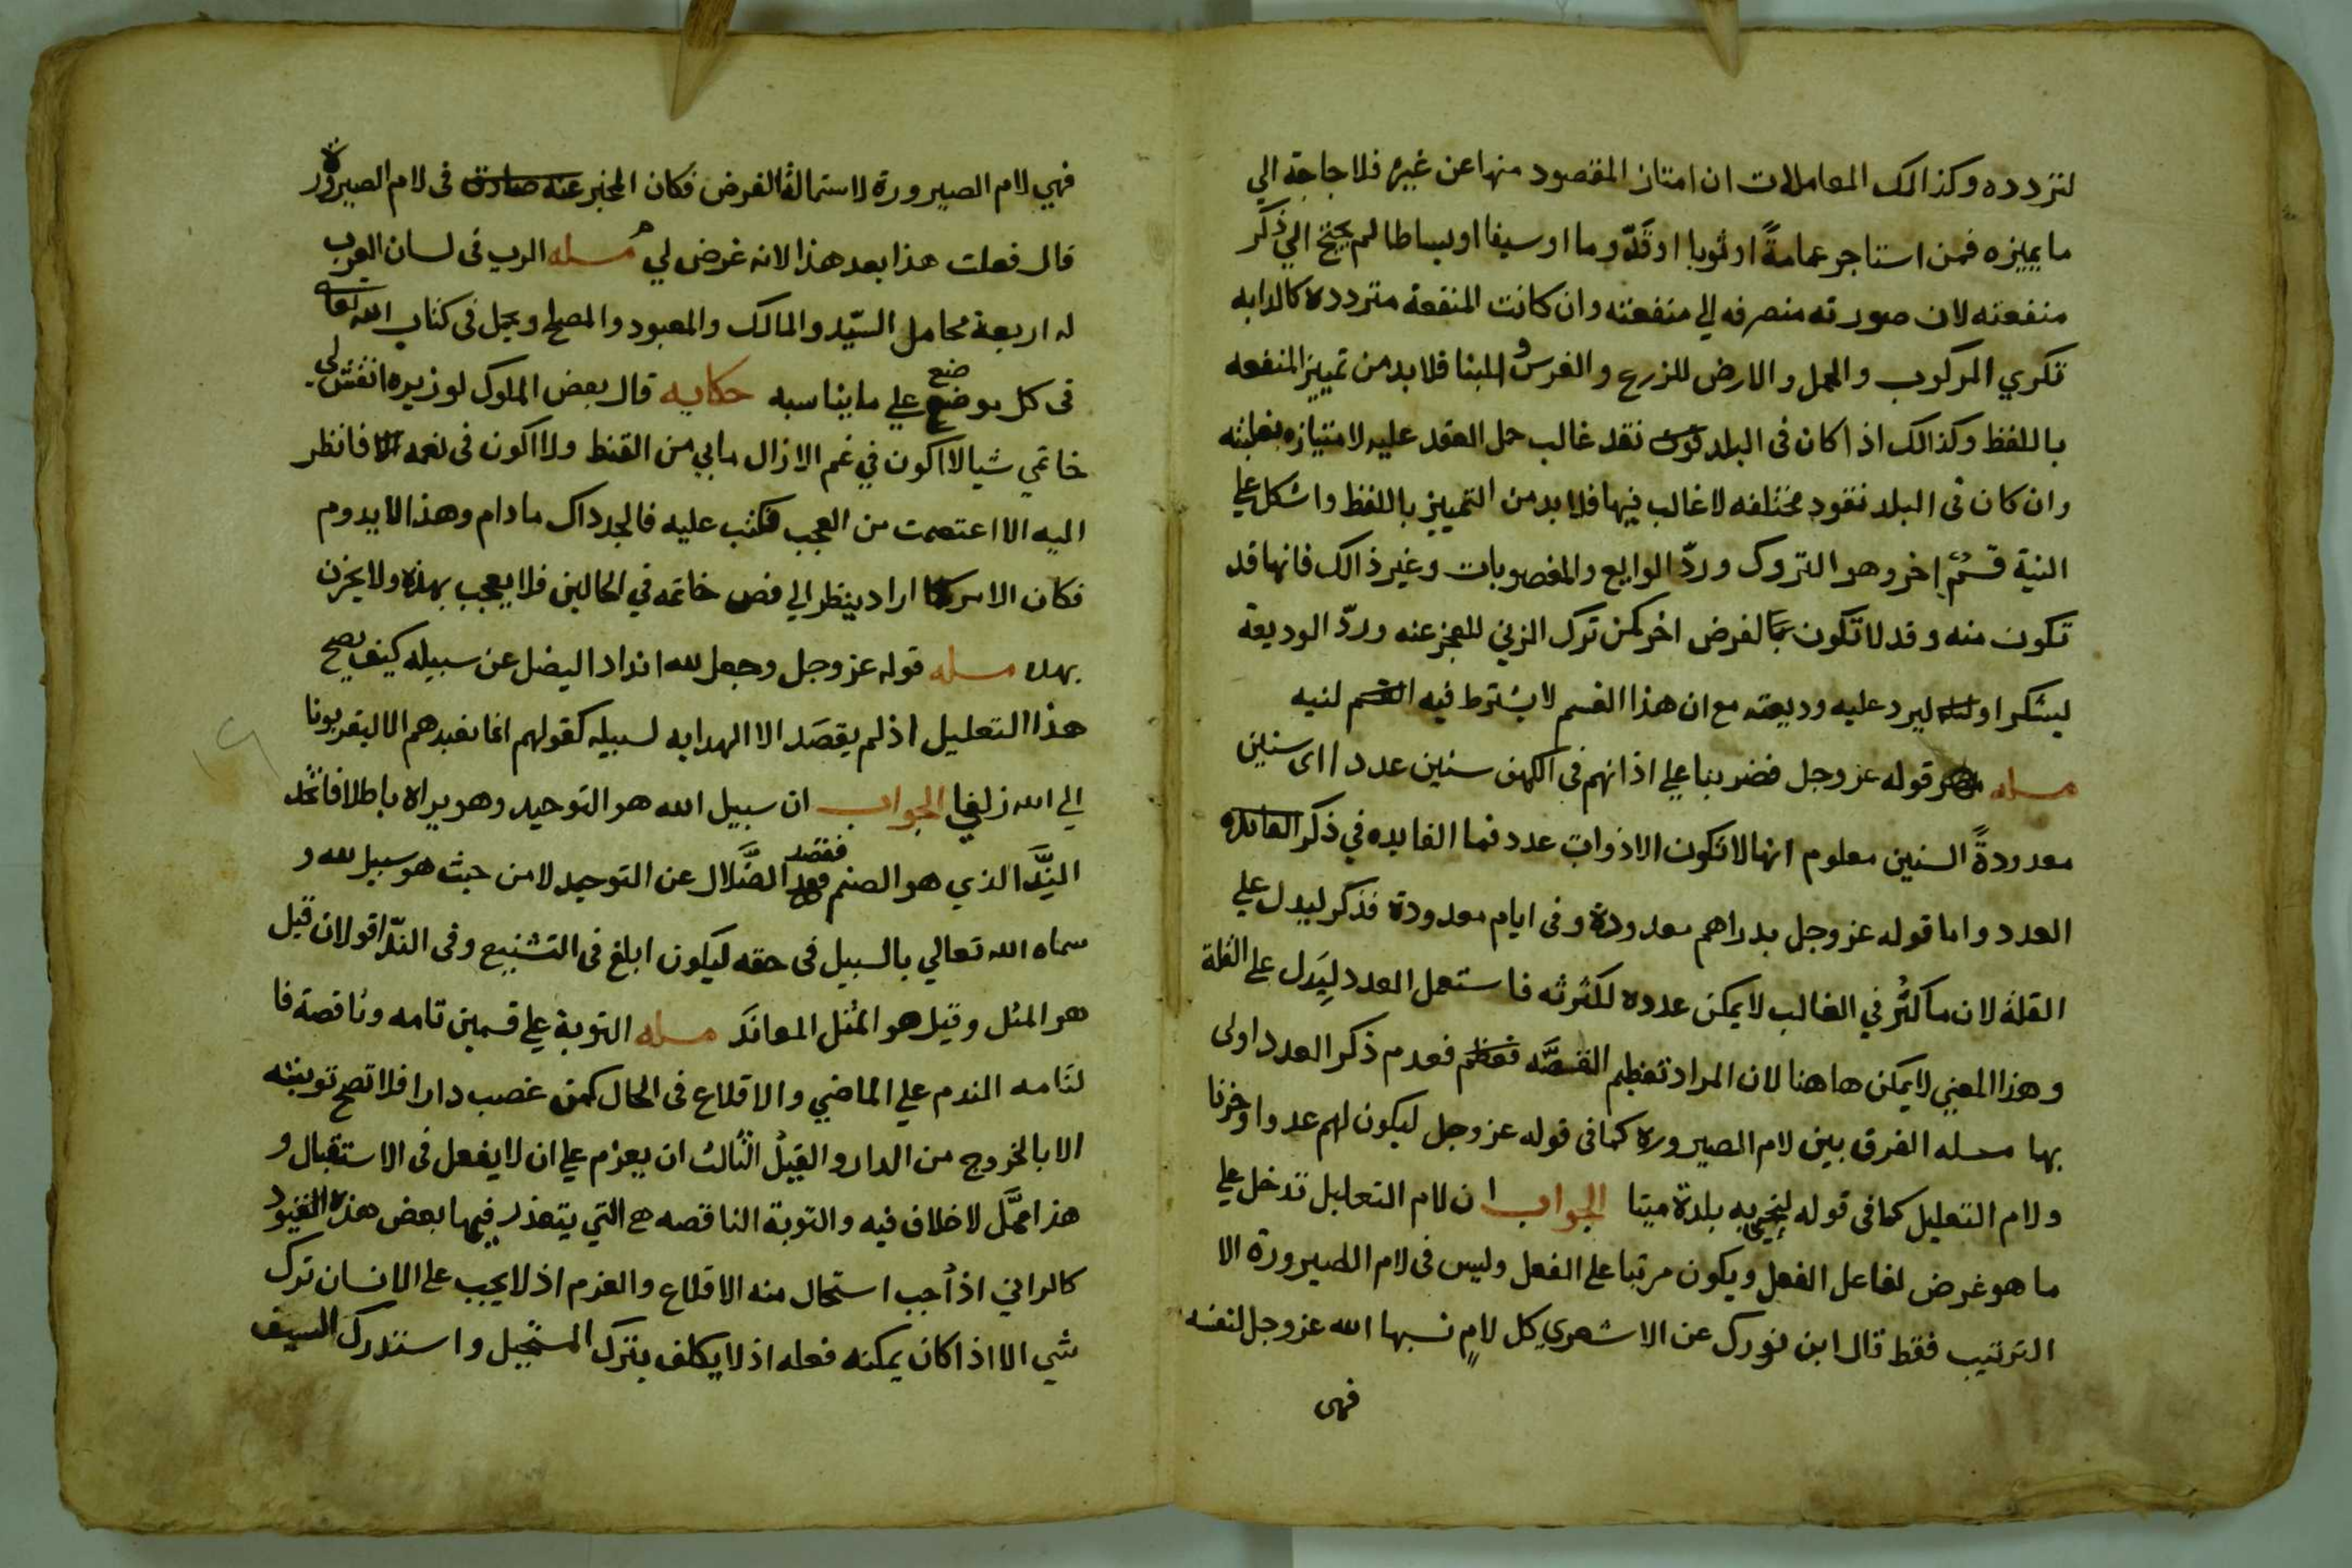 لتردده وكذالك المعاملات ان امتاز المقصود منها عن غيره فلا حاجة الي
ما يميزه فمن استاجر عمامةً او ثوبا او قدّوما او سيفا او بساطا لم يحتج الي ذكر
منفعته لان صورته منصرفه الي منفعته وان كانت المنفعة متردده كالدابه
تكري المركوب والحمل والارض للزرع والغرس و للبنا فلا بد من تمييز المنفعه
باللفظ وكذالك اذا كان فى البلد نقد غالب حمل العقد عليه لامتيازه بغلبته
وان كان فى البلد نقود مختلفه لا غالب فيها فلا بد من التمييز باللفظ واشكل علي
النية قسمٌ اخر وهو التروك وردّ الودايع والمغصوبات وغير ذالك فانها قد
تكون منه وقد لا تكون لغرض اخر كمن ترك الزني للعجز عنه وردّ الوديعة
ليشكر او ليرد عليه وديعته مع ان هذا القسم لا يشترط فيه لنيه
مسله قوله عز وجل فضربنا علي اذانهم فى الكهف سنين عددا اى سنين
معدودةً السنين معلوم انها لا تكون الا ذوات عدد فما الفايده في ذكر
العدد واما قوله عز وجل بدراهم معدودة وفى ايام معدودة فذكر ليدل علي
القلة لان ما كثُر في الغالب لا يمكن عدده لكثرته فاستعمل العدد لِيَدل على القلة
وهذا المعني لا يمكن هاهنا لان المراد تعظيم القصَّه فعدم ذكر العدد اولى
بها مسله الفرق بين لام الصيروره كما فى قوله عز وجل ليكون لهم عدوا وحزنا
ولام التعليل كما فى قوله لنحيي به بلدة ميتا الجواب ان لام التعليل تدخل علي
ما هو غرض لفاعل الفعل ويكون مرتبا على الفعل وليس فى لام الصيرورة الا
الترتيب فقط قال ابن فورك عن الاشعري كل لامٍ نسبها الله عز وجل لنفسه
فهى
فهي لام الصيرورة لاستحالة الغرض فكان المخبر فى لام الصيرورة
قال فعلت هذا بعد هذا لا انه غرض لي مسله الرب فى لسان العرب
له اربعة محامل السيّد والمالك والمعبود والمصلح ويحمل فى كتاب الله تعالى
فى كل موضع ضع علي ما يناسبه حكايه قال بعض الملوك لوزيره انقش لي
خاتمي شيا لا اكون في غم الا زال ما بي من القنط ولا اكون فى نعمه فانظر
اليه الا اعتصمت من العجب فكتب عليه فالجد داك ما دام وهذا لا يدوم
فكان الامر اراد ينظر الي فص خاتمه في الحالين فلا يعجب بهذه ولا يحزن
بهده مسله قوله عز وجل وجعل لله اندادا ليضل عن سبيله كيف يصح
هذا التعليل اذ لم يقصَد الا الهدايه لسبيله كقولهم انما نعبدهم الا ليقربونا
الي الله زلفي الجواب ان سبيل الله هو التوحيد وهو يراه باطلا فاتخذ
النِّدَّ الذي هو الصنم فقصد الضَّلال عن التوحيد لا من حيث هو سبيل لله و
سماه الله تعالي بالسبيل فى حقه ليكون ابلغ فى التشنيع وفى الندّ اقولان قيل
هو المثل وقيل هو المثل المعاند مسله التوبة علي قسمين تامه وناقصة فا
لتامه الندم علي الماضي والاقلاع فى الحال كمن غصب دارا فلا تصح توبته
الا بالخروج من الدار والقيدُ الثالث ان يعزم علي ان لا يفعل فى الاستقبال و
هذا لا خلاف فيه والتوبة الناقصه هي التي يتعذر فيها بعض هذه القيود
كالزاني اذ اُجب استحال منه الاقلاع والعزم اذ لا يجب على الانسان ترك
شي الا اذا كان يمكنه فعله اذ لا يكلف بترك المستحيل واستدرك السيف